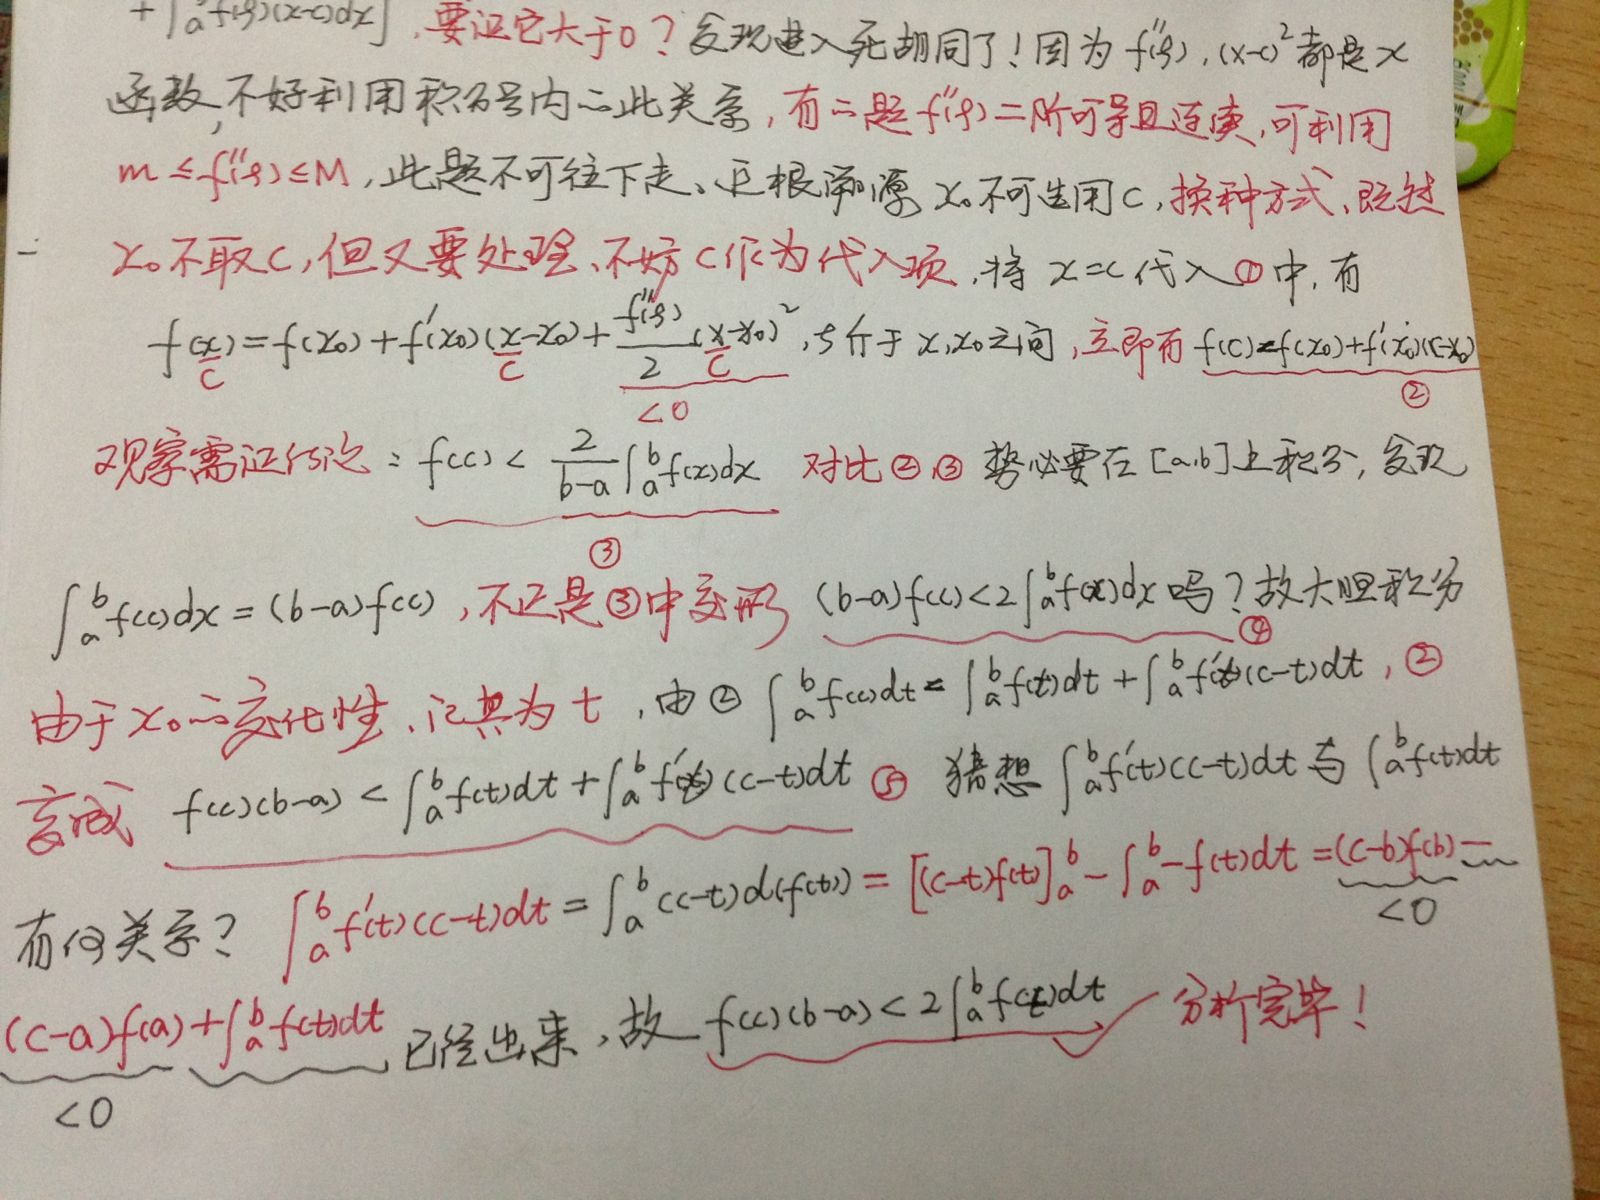 +∫ₐ f''(ξ)(x-c)dx], 要证它大于0？发现进入死胡同了！因为 f''(ξ), (x-c)² 都是x
函数, 不好利用积分号内的此关系, 有的题f''(ξ)二阶可导且连续, 可利用
m≤f''(ξ)≤M, 此题不可往下走、正根溯源 x₀不可选用C, 换种方式、既然
x₀不取C, 但又要处理、不妨C作为代入项, 将 x=c 代入①中, 有
f(x)=f(x₀)+f'(x₀)(x-x₀)+f''(ξ)/2 (x-x₀)², ξ介于x,x₀之间, 立即有 f(c)<f(x₀)+f'(x₀)(c-x₀)
C C C <0 ②
观察需证结论: f(c) < 2/(b-a) ∫ₐᵇ f(x)dx 对比②、③ 势必要在[a,b]上积分, 发现
③
∫ₐᵇ f(c)dx=(b-a)f(c), 不正是③中变形 (b-a)f(c)<2∫ₐᵇ f(x)dx 吗？故大胆积分
④
由于x₀的变化性、记其为t, 由② ∫ₐᵇ f(c)dt < ∫ₐᵇ f(t)dt+∫ₐᵇ f'(t)(c-t)dt, ②
变成 f(c)(b-a) < ∫ₐᵇ f(t)dt+∫ₐᵇ f'(t)(c-t)dt ⑤ 猜想 ∫ₐᵇ f'(t)(c-t)dt 与 ∫ₐᵇ f(t)dt
有何关系？ ∫ₐᵇ f'(t)(c-t)dt = ∫ₐᵇ (c-t)d(f(t)) = [(c-t)f(t)]ₐᵇ - ∫ₐᵇ -f(t)dt = (c-b)f(b) -
<0
(c-a)f(a)+∫ₐᵇ f(t)dt 已经出来, 故 f(c)(b-a)<2∫ₐᵇ f(t)dt 分析完毕！
<0